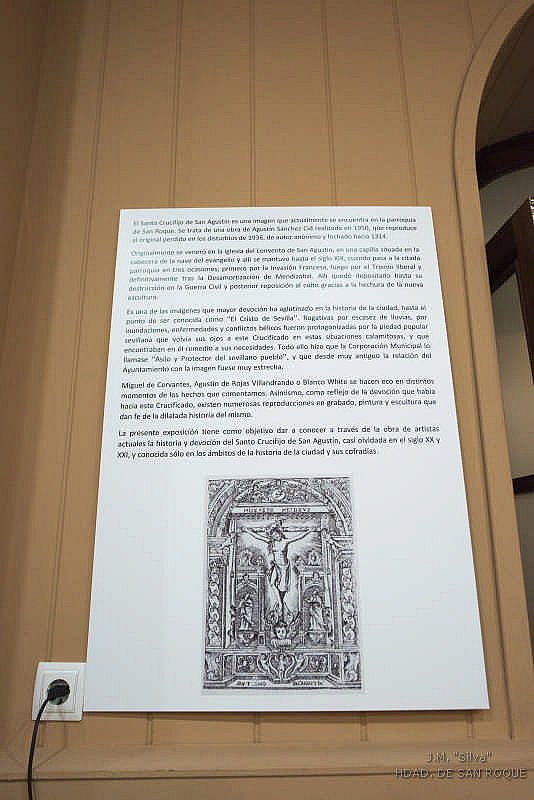 El Santo Crucifijo de San Agustín es una imagen que actualmente se encuentra en la parroquia
de San Roque. Se trata de una obra de Agustín Sánchez Cid realizada en 1950, que reproduce
el original perdido en los disturbios de 1936, de autor anónimo y fechado hacia 1314.
Originalmente se veneró en la iglesia del convento de San Agustín, en una capilla situada en la
cabecera de la nave del evangelio y allí se mantuvo hasta el siglo XIX, cuando pasa a la citada
parroquia en tres ocasiones: primero por la Invasión Francesa, luego por el Trienio liberal y
definitivamente tras la Desamortización de Mendizábal. Allí quedó depositado hasta su
destrucción en la Guerra Civil y posterior reposición al culto gracias a la hechura de la nueva
escultura.
Es una de las imágenes que mayor devoción ha aglutinado en la historia de la ciudad, hasta el
punto de ser conocida como "El Cristo de Sevilla". Rogativas por escasez de lluvias, por
inundaciones, enfermedades y conflictos bélicos fueron protagonizadas por la piedad popular
sevillana que volvía sus ojos a este Crucificado en estas situaciones calamitosas, y que
encontraban en él remedio a sus necesidades. Todo ello hizo que la Corporación Municipal lo
llamase "Asilo y Protector del sevillano pueblo", y que desde muy antiguo la relación del
Ayuntamiento con la imagen fuese muy estrecha.
Miguel de Cervantes, Agustín de Rojas Villandrando o Blanco White se hacen eco en distintos
momentos de los hechos que comentamos. Asimismo, como reflejo de la devoción que había
hacia este Crucificado, existen numerosas reproducciones en grabado, pintura y escultura que
dan fe de la dilatada historia del mismo.
La presente exposición tiene como objetivo dar a conocer a través de la obra de artistas
actuales la historia y devoción del Santo Crucifijo de San Agustín, casi olvidada en el siglo XX y
XXI, y conocida sólo en los ámbitos de la historia de la ciudad y sus cofradías.
J.M. "Silva"
HDAD. DE SAN ROQUE